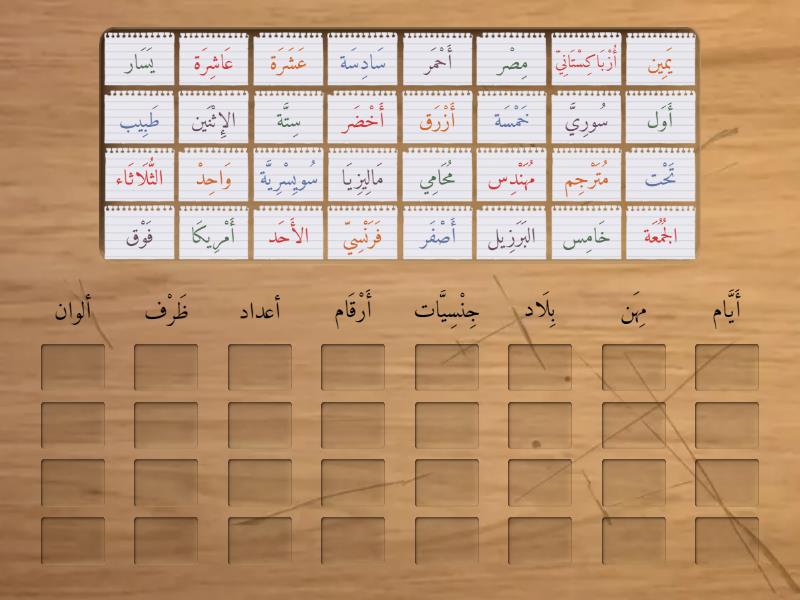 يَمِين أُزْبَاكِسْتَانِيّ مِصْر أَحْمَر سَادِسَة عَشَرَة عَاشِرَة يَسَار
أَوَل سُورِيَّ خَمْسَة أَزْرَق أَخْضَر سِتَّة الإِثْنَين طَبِيب
تَحْت مُتَرْجِم مُهَنْدِس مُحَامِي مَالِيزِيَا سُويسْرِيَّة وَاحِدْ الثُّلَاثَاء
الجُمُعَة خَامِس البَرَزِيل أَصْفَر فَرَنْسِيّ الأَحَد أَمْرِيكَا فَوْق
أَيَّام مِهَن بِلَاد جِنْسِيَّات أَرْقَام أعداد ظَرْف ألوان